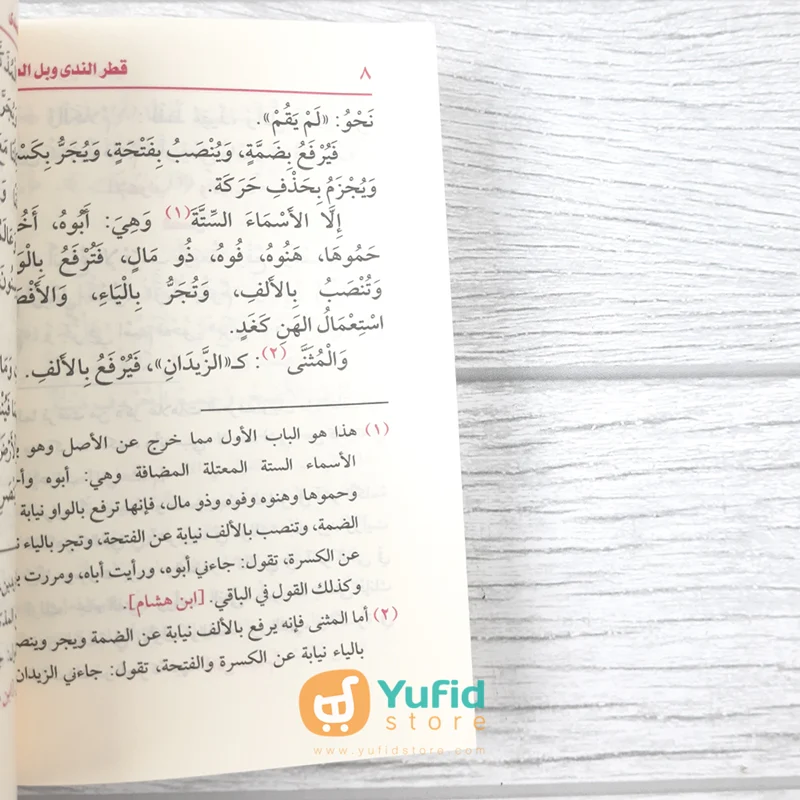 ٨ قطر الندى وبل
نَحْوُ: «لَمْ يَقُمْ».
فَيُرْفَعُ بِضَمَّةٍ، وَيُنْصَبُ بِفَتْحَةٍ، وَيُجَرُّ
وَيُجْزَمُ بِحَذْفِ حَرَكَة.
إِلَّا الأَسْمَاءَ السِّتَّةَ(١) وَهِيَ: أَبُوهُ،
حَمُوهَا، هَنُوهُ، فُوهُ، ذُو مَالٍ، فَتُرْفَعُ
وَتُنْصَبُ بِالأَلفِ، وَتُجَرُّ بِالْيَاءِ،
اسْتِعْمَالُ الهَنِ كَغَدٍ.
وَالْمُثَنَّى(٢): كـ«الزَّيدَانِ»، فَيُرْفَعُ بِالأَلفِ.
(١) هذا هو الباب الأول مما خرج عن الأصل وهو
الأسماء الستة المعتلة المضافة وهي: أبوه
وحموها وهنوه وفوه وذو مال، فإنها ترفع بالواو نيابة
الضمة، وتنصب بالألف نيابة عن الفتحة، وتجر بالياء
عن الكسرة، تقول: جاءني أبوه، ورأيت أباه، ومررت
وكذلك القول في الباقي. [ابن هشام].
(٢) أما المثنى فإنه يرفع بالألف نيابة عن الضمة ويجر
بالياء نيابة عن الكسرة والفتحة، تقول: جاءني الزيدان
Yufid
store
www.yufidstore.com